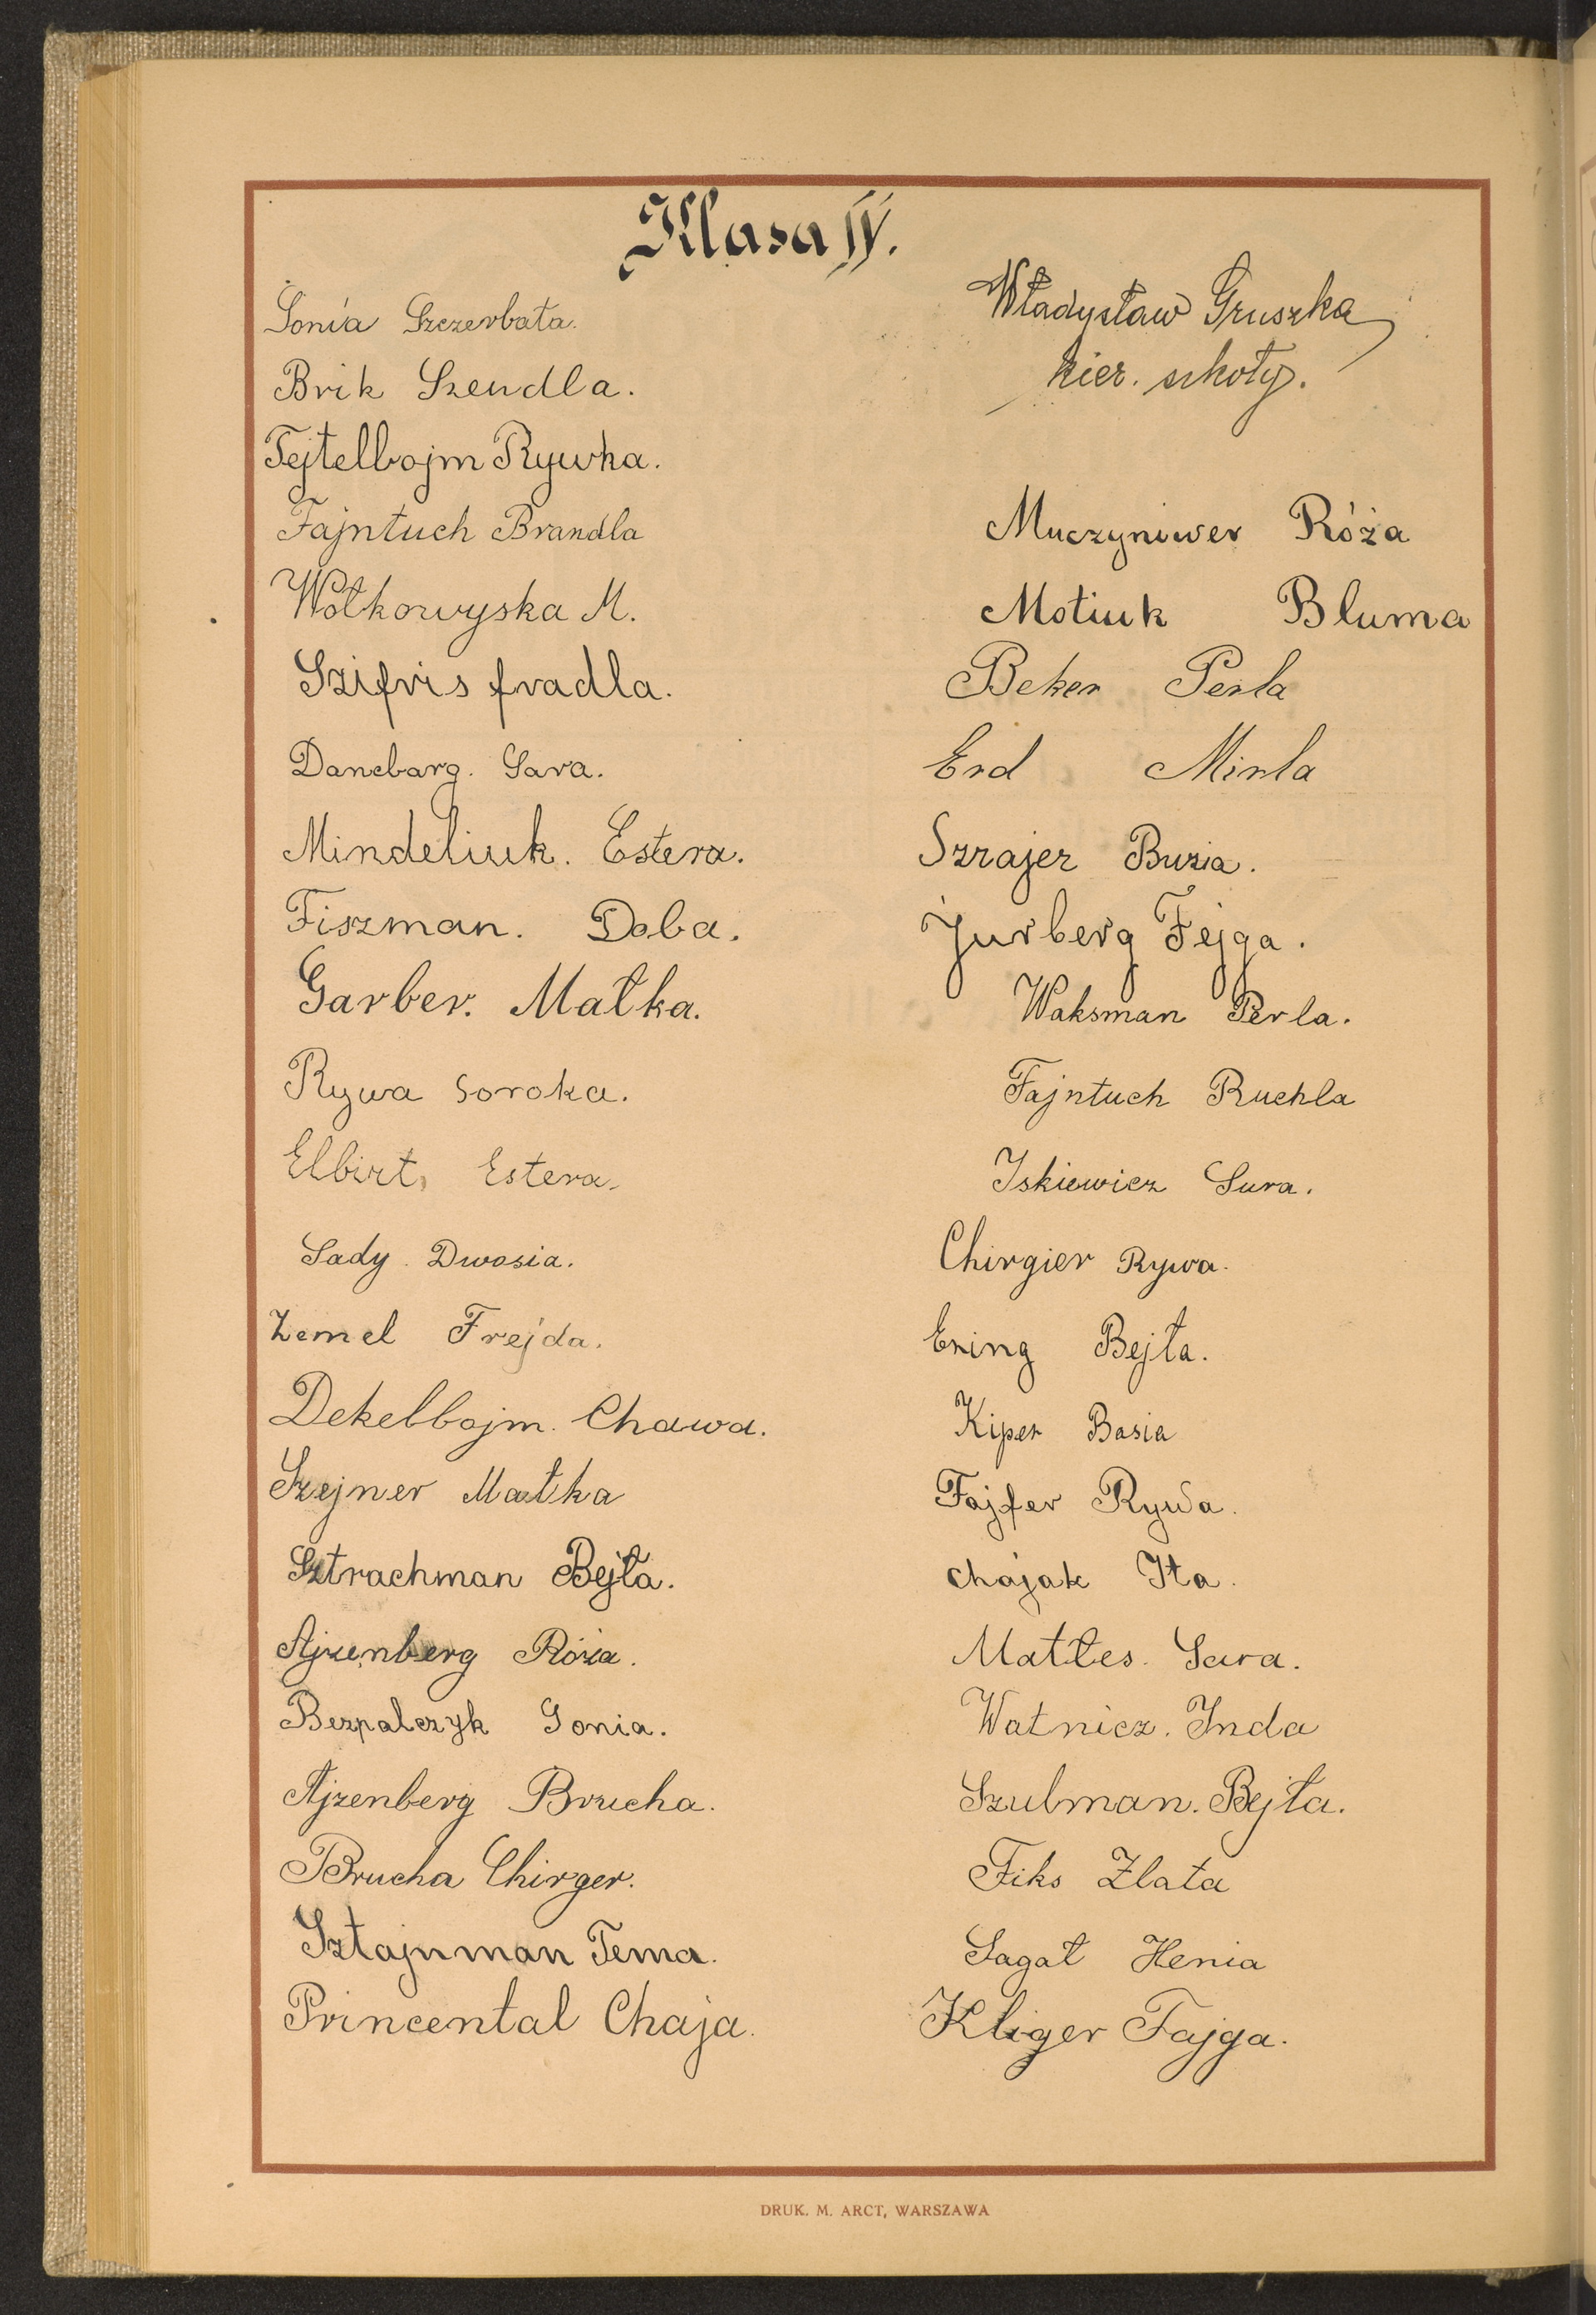 Klasa IV.
Sonia Szczerbata.
Brik Szendla.
Tejtelbojm Rywka.
Fajntuch Brandla
Wołkowyska M.
Szifris fradla.
Daneberg. Sara.
Mindeliuk. Estera.
Fiszman. Doba.
Garber. Małka.
Rywa Soroka.
Elbirt, Estera.
Sady. Dwosia.
Zemel Frejda.
Dekelbojm. Chawa.
Szejner Małka
Sztrachman Bejła.
Ajzenberg Róża.
Bezpalczyk Sonia.
Ajzenberg Brucha.
Brucha Chirger.
Sztajnman Tema.
Princental Chaja.
Władysław Gruszka
kier. szkoły.
Muczyniwer Róża
Motiuk Bluma
Beker Perla
Erd Mirla
Szrajer Buzia.
Jurberg Fejga.
Waksman Perla.
Fajntuch Ruchla
Iskiewicz Sura.
Chirgier Rywa.
Ering Bejła.
Kiper Basia
Fajfer Rywa.
Chajak Ita.
Mattes. Sara.
Watnicz. Inda
Szulman. Bejła.
Fiks Złata
Sagał Henia
Kliger Fajga.
DRUK. M. ARCT, WARSZAWA